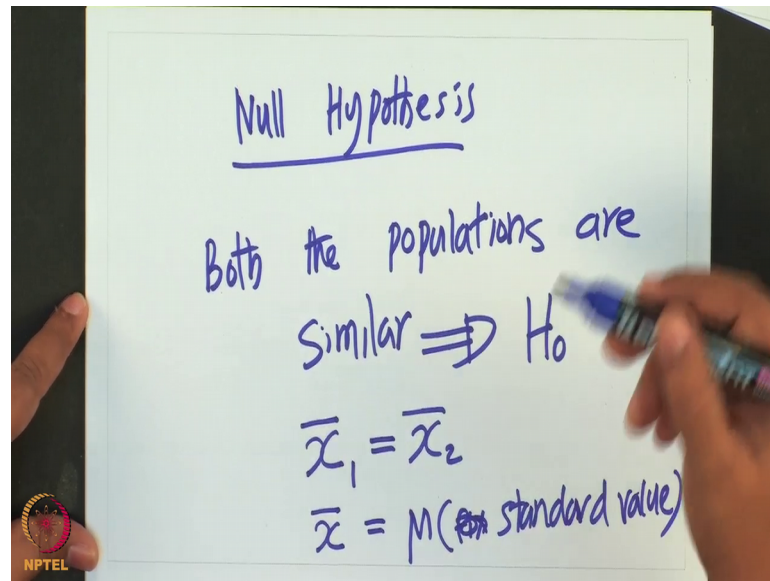 Null Hypothesis
Both the populations are
similar ⇒ H₀
x̄₁ = x̄₂
x̄ = μ ( standard value)
NPTEL